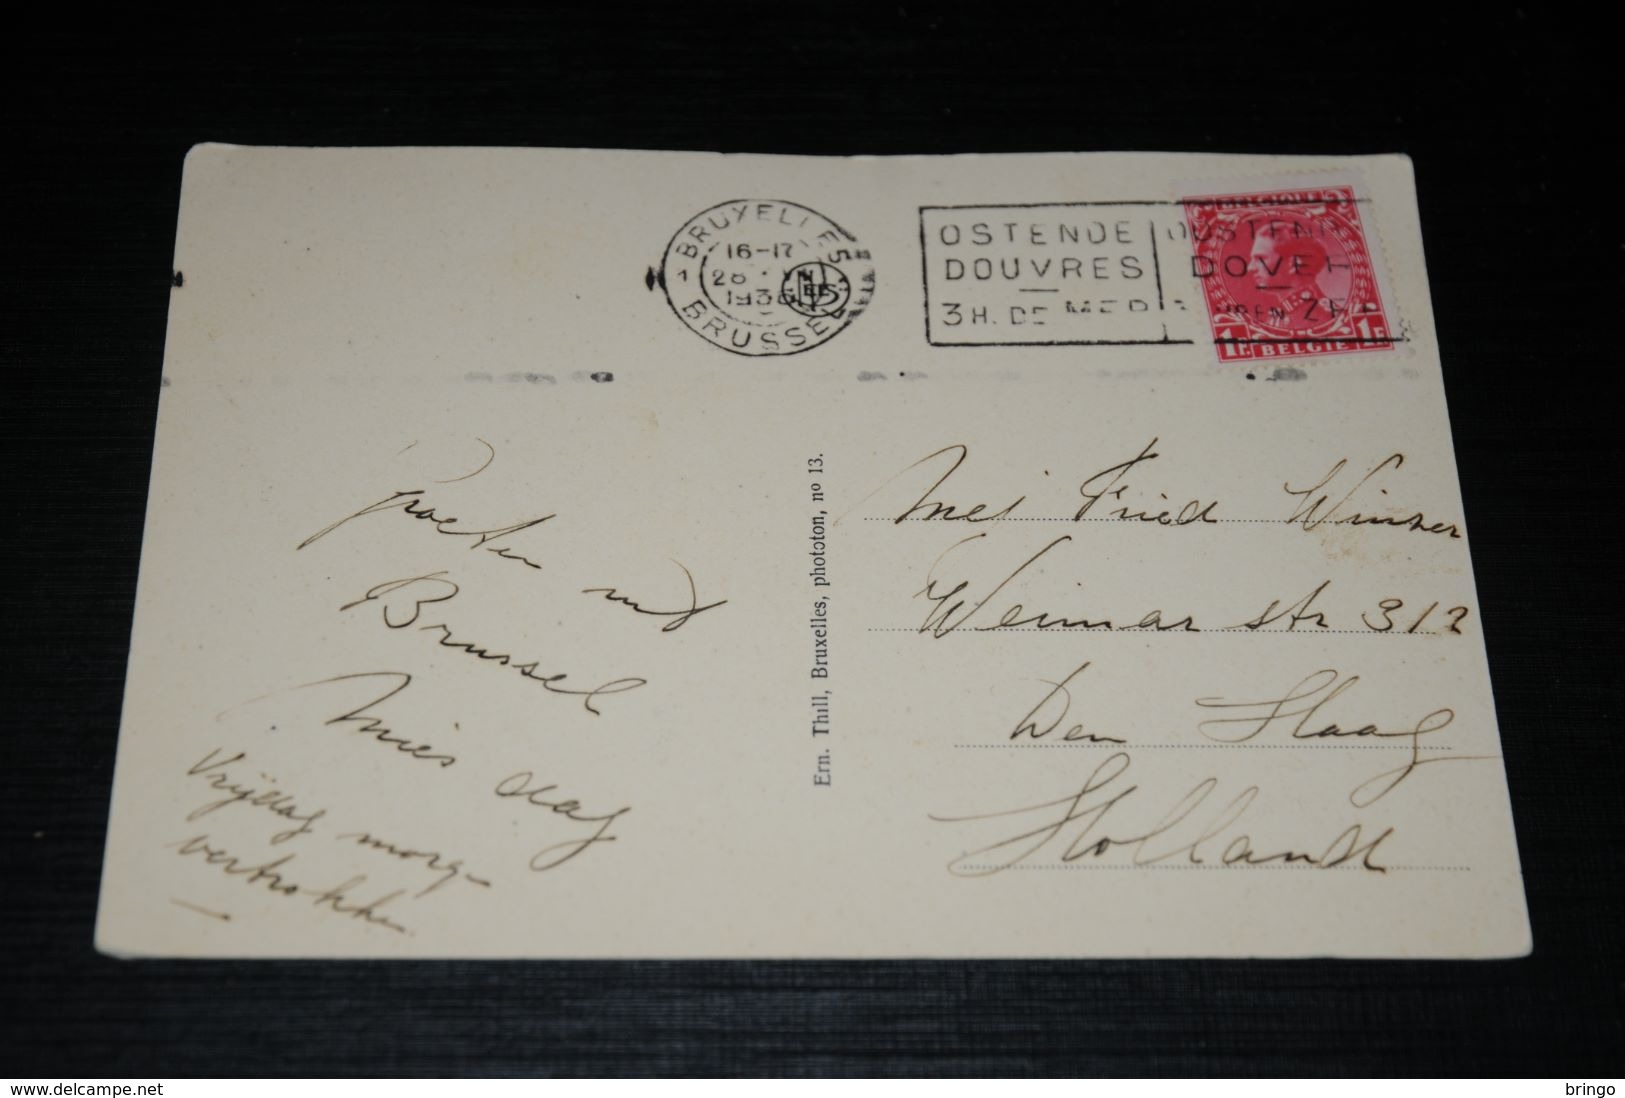 BRUXELLES
16-17
28
1936
BRUSSEL
1
OSTENDE
DOUVRES
3 H. DE MER
OOSTENDE
DOVER
UREN ZEE
BELGIQUE
1F. BELGIE 1F.
Groeten uit
Brussel
Mies
Vrijdag morg
vertrokken
Ern. Thill, Bruxelles, phototon, no 13.
Mej Fried Winser
Weimar str 312
Den Haag
Holland
www.delcampe.net
bringo